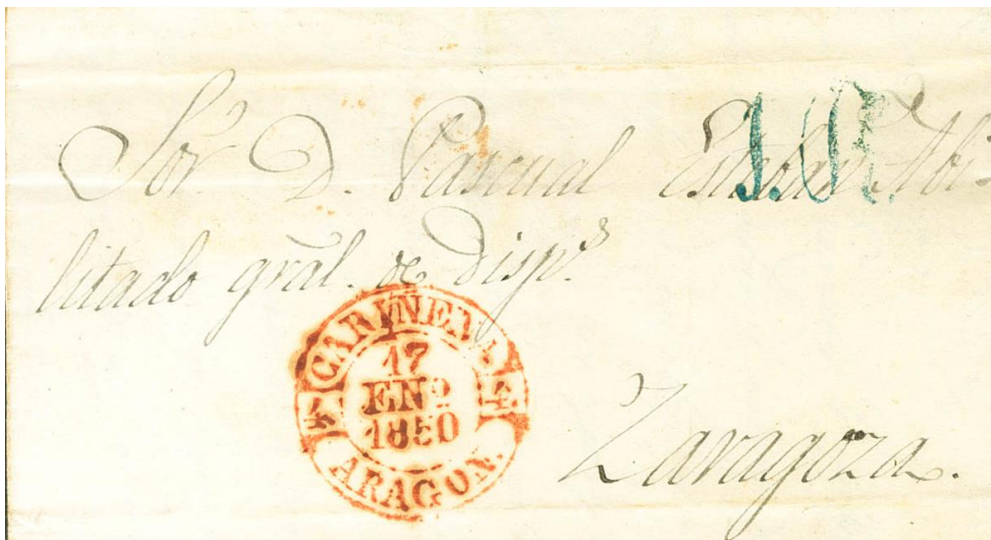 Sor. D. Pascual Esteban Abi-
litado gral. de Disp.s
1.R.
CARIÑENA
17
ENO
1850
ARAGON.
Zaragoza.